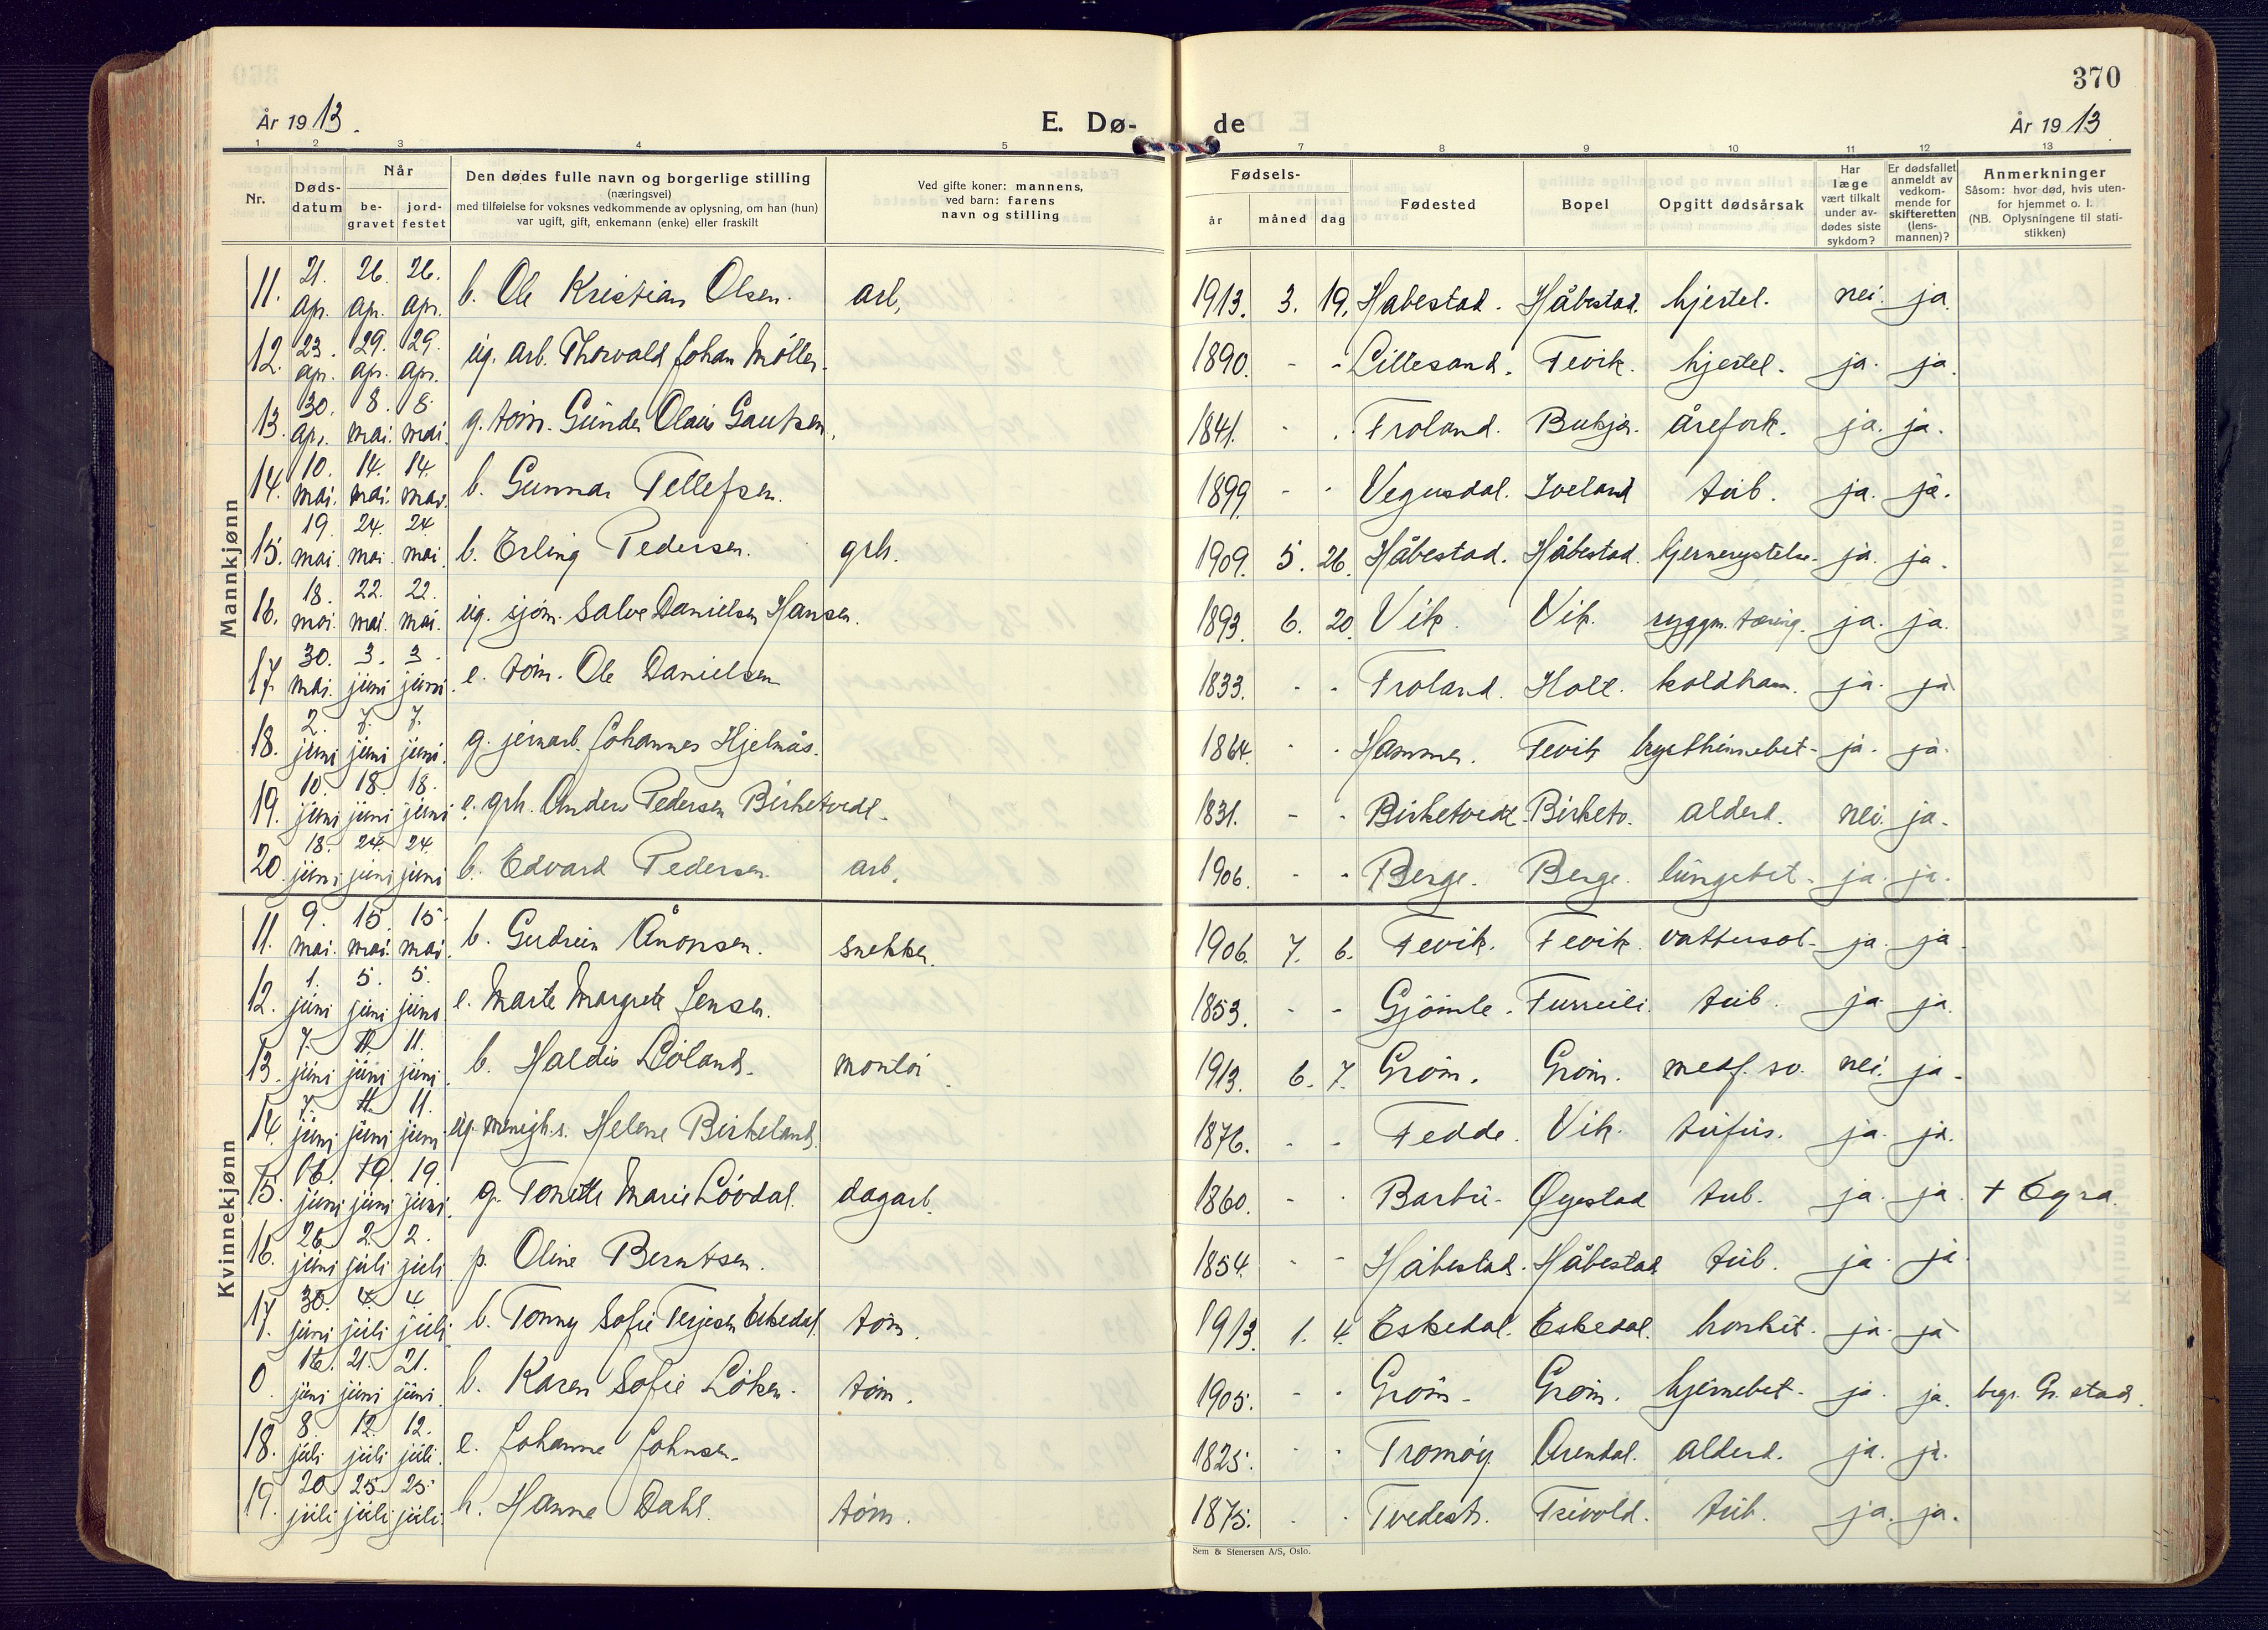 370
År 1913.
E. Dø-de
År 1913
1 2 3 4 5 7 8 9 10 11 12 13
Nr.
Døds-datum
Når
be-gravet
jord-festet
Den dødes fulle navn og borgerlige stilling
(næringsvei)
med tilføielse for voksnes vedkommende av oplysning, om han (hun)
var ugift, gift, enkemann (enke) eller fraskilt
Ved gifte koner: mannens,
ved barn: farens
navn og stilling
Fødsels-
år måned dag
Fødested
Bopel
Opgitt dødsårsak
Har læge vært tilkalt under av-dødes siste sykdom?
Er dødsfallet anmeldt av vedkom-mende for skifteretten (lens-mannen)?
Anmerkninger
Såsom: hvor død, hvis uten-
for hjemmet o. l.
(NB. Oplysningene til stati-
stikken)
Mannkjønn
11. 21. apr. 26. apr. 26. apr. b. Ole Kristian Olsen. arb. 1913. 3. 19. Håbestad. Håbestad. hjertel. nei. ja.
12. 23. apr. 29. apr. 29. apr. ug. arb. Thorvald Johan Møller. 1890. - - Lillesand. Fevik. hjertel. ja. ja.
13. 30. apr. 8. mai. 8. mai. g. tøm. Gunder Olaus Gautsen. 1841. - - Froland. Bukjer. årefork. ja. ja.
14. 10. mai. 14. mai. 14. mai. b. Gunnar Tellefsen. 1899 - - Vegusdal. Iveland tub. ja. ja.
15. 19. mai. 24. mai. 24. mai b. Erling Pedersen. grb. 1909. 5. 26. Håbestad. Håbestad. hjernerystelse. ja. ja.
16. 18. mai. 22. mai. 22. mai. ug. sjøm. Salve Danielsen Hansen. 1893. 6. 20. Vik. Vik. ryggm. tæring. ja. ja.
17. 30. mai. 3. juni 3. juni. e. tøm. Ole Danielsen 1833. - - Froland. Holt. koldbran. ja. ja
18. 2. juni 7. juni 7. juni. g. jernarb. Johannes Hjelmås. 1864. - - Hammer. Fevik brysthinnebet. ja. ja.
19. 10. juni 18. juni 18. juni e. grb. Anders Pedersen Birketvedt. 1831. - - Birketvedt. Birketv. alderd. nei. ja.
20. 18. juni 24. juni 24. juni b. Edvard Pedersen. arb. 1906. - - Berge. Berge. lungebet. ja. ja.
Kvinnekjønn
11. 9. mai. 15. mai. 15. mai. b. Gudrun Ånonsen. snekker. 1906. 7. 6. Fevik. Fevik. vattersot. ja. ja.
12. 1. juni 5. juni 5. juni e. Marte Margrete Jensen. 1853. - - Gjømle. Fururli. tub. ja. ja.
13. 7. juni 11. juni 11. juni. b. Haldis Løland. montør. 1913. 6. 7. Grøm. Grøm. medf. sv. nei. ja.
14. 7. juni 11. juni 11. juni ug. menigh.s. Helene Birkeland. 1876. - - Fedde. Vik. tufus. ja. ja.
15. 16. juni 19. juni 19. juni. g. Tonette Marie Løvdal. dagarb. 1860. - - Barbu. Øyestad tub. ja. ja. + Egra.
16. 26. juni 2. juli 2. juli. p. Oline Berntsen. 1854. - - Håbestad. Håbestad tub. ja. ja.
17. 30. juni 4. juli 4. juli b. Tonny Sofie Terjesen Eskedal. tøm. 1913. 1. 4. Eskedal. Eskedal. bronkit. ja. ja
0. 16. juni 21. juni 21. juni. b. Karen Sofie Løken. tøm. 1905. - - Grøm. Grøm. hjernebet. ja. ja. begr. Gr. stad.
18. 8. juli 12. juli 12. juli. e. Johanne Johnsen. 1825. - - Tromøy Arendal. alderd. ja. ja.
19. 20 juli 25 juli 25. juli. h. Hanne Dahl. tøm. 1875. - - Tvedestr. Trivold. tub. ja. ja.
Sem & Stenersen A/S, Oslo.